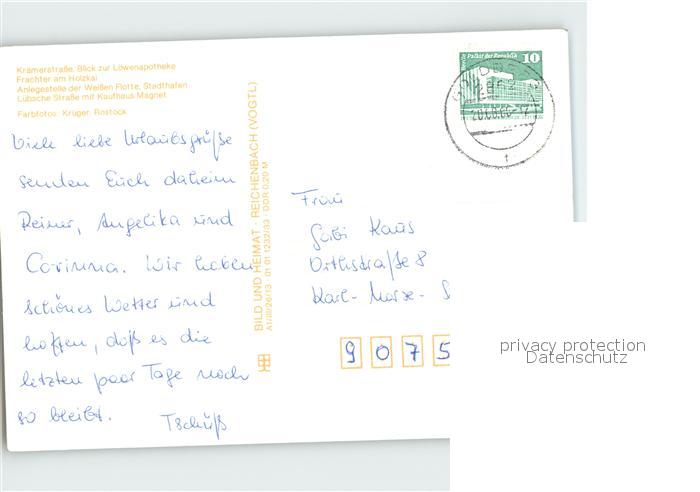 Krämerstraße, Blick zur Löwenapotheke
Frachter am Holzkai
Anlegestelle der Weißen Flotte, Stadthafen
Lübsche Straße mit Kaufhaus Magnet
Farbfotos: Krüger, Rostock
Viele liebe Urlaubsgrüße
senden Euch daheim
Reiner, Angelika und
Corinna. Wir haben
schönes Wetter und
hoffen, daß es die
letzten paar Tage noch
so bleibt.
Tschüß
BILD UND HEIMAT · REICHENBACH (VOGTL)
A1/III/26/13 · 01 01 1232/33 · DDR 0,20 M
Palast der Republik
10
Frau
Gabi Kaus
Orthstraße 8
Karl-Marx-S
9075
privacy protection
Datenschutz